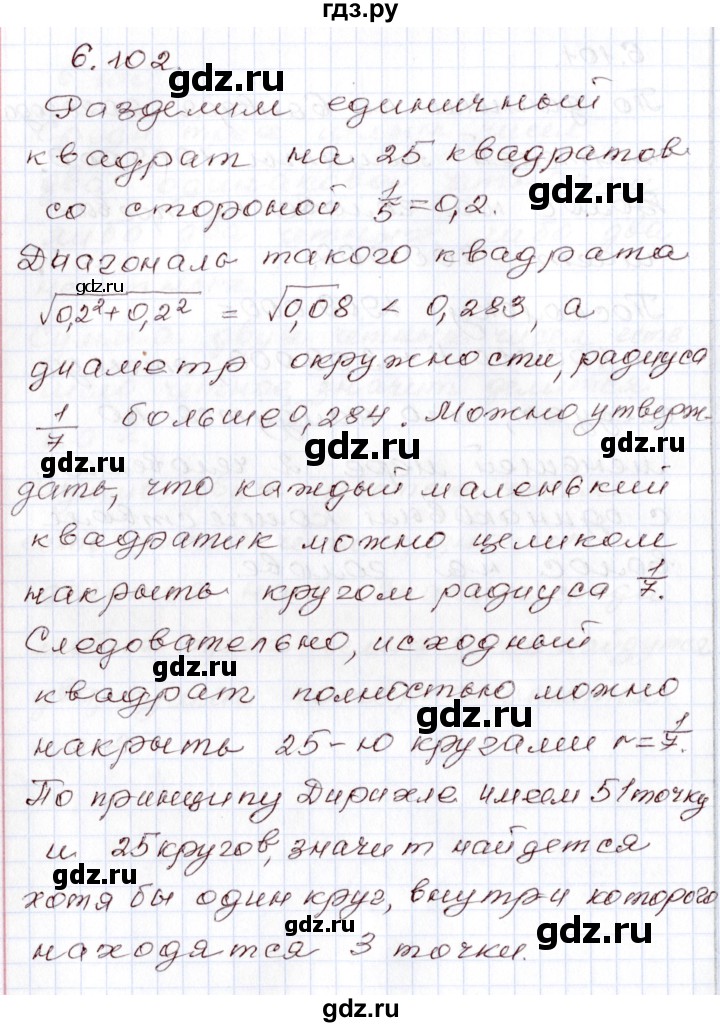 гдз.ру
6.102.
gdz.ru
Разделим единичный
квадрат на 25 квадратов
со стороной 1/5 = 0,2.
gdz.ru gdz.ru
Диагональ такого квадрата
gdz.ru
√0,2²+0,2² = √0,08 < 0,283, а
диаметр окружности, радиуса
gdz.ru
1/7 больше 0,284. Можно утверж-
gdz.ru gdz.ru
дать, что каждый маленький
квадратик можно целиком
gdz.ru
накрыть кругом радиуса 1/7.
Следовательно, исходный
gdz.ru
квадрат полностью можно
gdz.ru
накрыть 25-ю кругами r=1/7.
gdz.ru
По принципу Дирихле имеем 51 точку
и 25 кругов, значит найдется
gdz.ru
хотя бы один круг, внутри которого
gdz.ru gdz.ru
находятся 3 точки.
gdz.ru